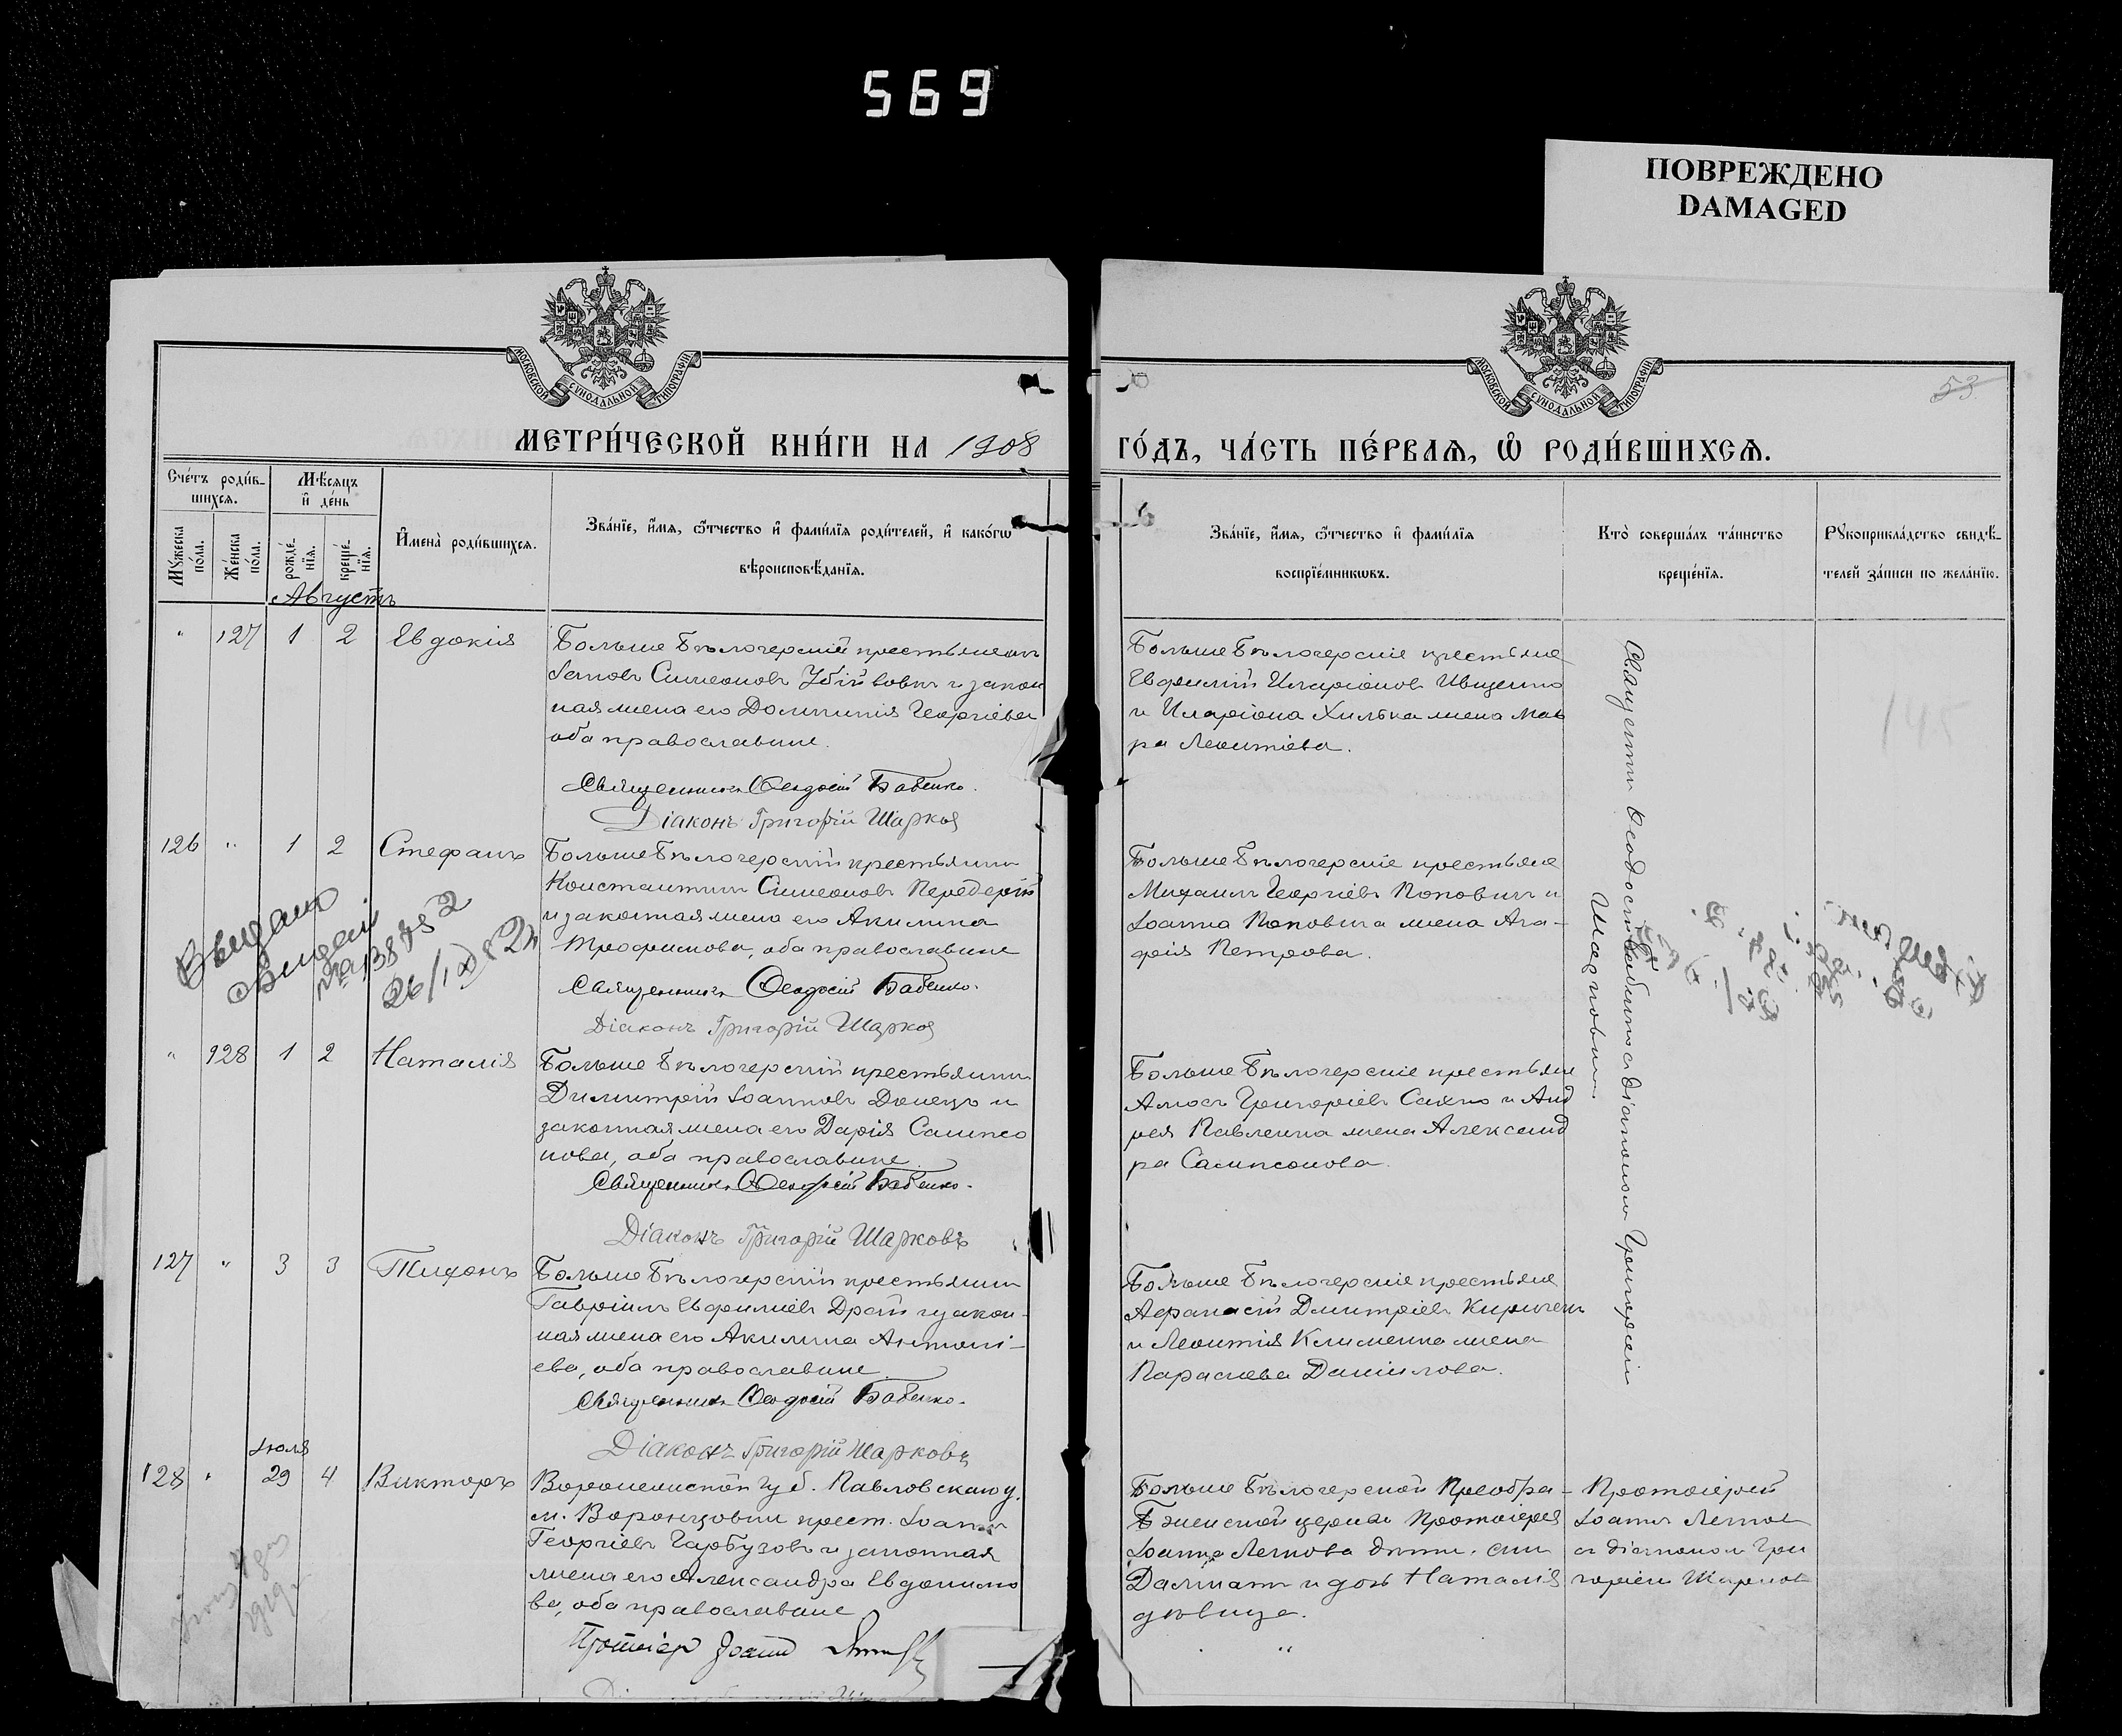 569
ПОВРЕЖДЕНО
DAMAGED
МОСКОВСКОЙ СѴНОДАЛЬНОЙ ТИПОГРАФІИ
МОСКОВСКОЙ СѴНОДАЛЬНОЙ ТИПОГРАФІИ
53
МЕТРИ́ЧЕСКОЙ КНИ́ГИ НА 1908
ГО́ДЪ, ЧА́СТЬ ПЕ́РВАѦ, Ѡ҆ РОДИ́ВШИХСѦ.
Сче́тъ роди́в-
шихсѧ.
Мѣ́сяцъ
и҆ де́нь
Мꙋ́жеска по́ла.
Же́нска по́ла.
рожде́-
нїѧ.
креще́-
нїѧ.
И҆мена̀ роди́вшихсѧ.
Зва́нїе, и҆́мѧ, ѻ҆́тчество и҆ фами́лїѧ роди́телей, и҆ како́гѡ
вѣроисповѣ́данїѧ.
Зва́нїе, и҆́мѧ, ѻ҆́тчество и҆ фами́лїѧ
воспрїе́мникѡвъ.
Кто̀ соверша́лъ та́инство
креще́нїѧ.
Рꙋкоприкла́дство свидѣ́-
телей за́писи по жела́нїю.
Августъ
" 127 1 2 Евдокія
Больше Бѣлозерскій крестьянинъ
Симеоновъ и закон
ная жена его Георгіева
оба православные.
Священникъ Ѳеодосій Бабенко.
Діаконъ Григорій Шарковъ
Больше Бѣлозерскіе крестьяне
Евфимій Иларіоновъ Иващенко
и Иларіона Хилька жена Мав
ра Леонтіева.
Священникъ Ѳеодосій Бабенко съ діакономъ Григоріемъ
Шарковымъ
145
126 " 1 2 Стефанъ
Больше Бѣлозерскій крестьянинъ
Константинъ Симеоновъ Передерій
и законная жена его Акилина
Трофимова, оба православные
Священникъ Ѳеодосій Бабенко.
Діаконъ Григорій Шарковъ
Больше Бѣлозерскіе крестьяне
Михаилъ Георгіевъ Поповичъ и
Іоанна Поповича жена Ага-
фія Петрова.
" 128 1 2 Наталія
Больше Бѣлозерскій крестьянинъ
Димитрій Іоанновъ Донецъ и
законная жена его Дарія Сампсо
нова, оба православные
Священникъ Ѳеодосій Бабенко.
Діаконъ Григорій Шарковъ
Больше Бѣлозерскіе крестьяне
Амосъ Григоріевъ Сахно и Анд
рея Павленка жена Александ
ра Сампсонова.
127 " 3 3 Тихонъ
Больше Бѣлозерскій крестьянинъ
Гавріилъ Евфиміевъ и закон-
ная жена его Акилина Антоні-
ева, оба православные
Священникъ Ѳеодосій Бабенко.
Діаконъ Григорій Шарковъ
Больше Бѣлозерскіе крестьяне
Афанасій Димитріевъ
и Леонтія Клименка жена
Параскева Даніилова.
Іюля
128 " 29 4 Викторъ
Воронежской губ. Павловскаго у.
Воронцовки крест. Іоаннъ
Георгіевъ Гарбузовъ и законная
жена его Александра Евдокимо
ва, оба православные
Протоіер Іоаннъ
Больше Бѣлозерской Преобра-
женской церкви Протоіерея
Іоанна дѣти: сынъ
Далматъ и дочь Наталія
дѣвица.
Протоіерей
Іоаннъ
съ діакономъ Гри
горіемъ Шарков